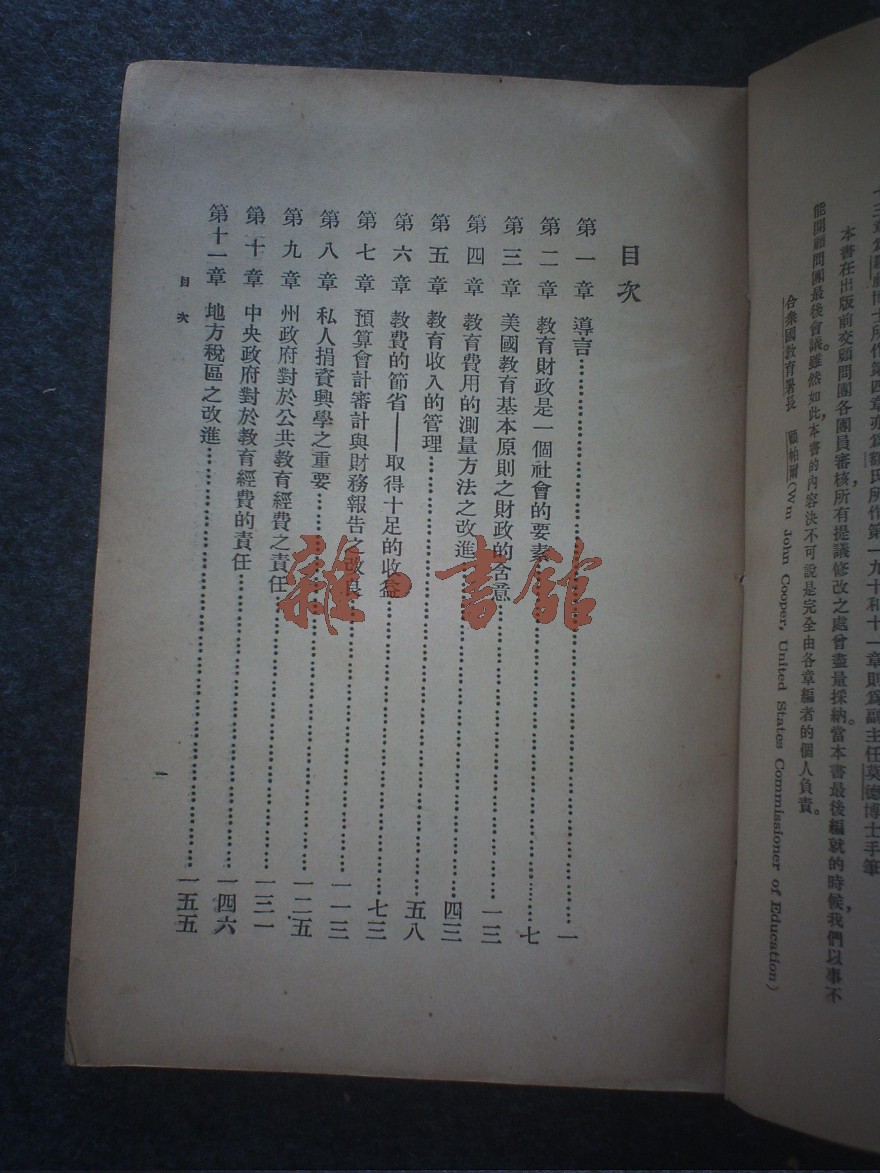 十三章爲
博士所作第四章亦爲
氏所作第一九十和十一章則爲副主任莫德博士手筆
本書在出版前交顧問團各團員審核所有提議修改之處曾盡量採納。當本書最後編就的時候,我們以事不
能開顧問團最後會議。雖然如此,本書的內容決不可說是完全由各章編者的個人負責。
合衆國教育署長 顧帕爾(Wm John Cooper, United States Commissioner of Education)
目次
第一章 導言……一
第二章 教育財政是一個社會的要素……七
第三章 美國教育基本原則之財政的含意……一三
第四章 教育費用的測量方法之改進……四三
第五章 教育收入的管理……五八
第六章 教費的節省——取得十足的收益……七三
第七章 預算會計審計與財務報告之改良……一一三
第八章 私人捐資興學之重要……一二五
第九章 州政府對於公共教育經費之責任……一三一
第十章 中央政府對於教育經費的責任……一四六
第十一章 地方稅區之改進……一五五
目次
一
雜·書館